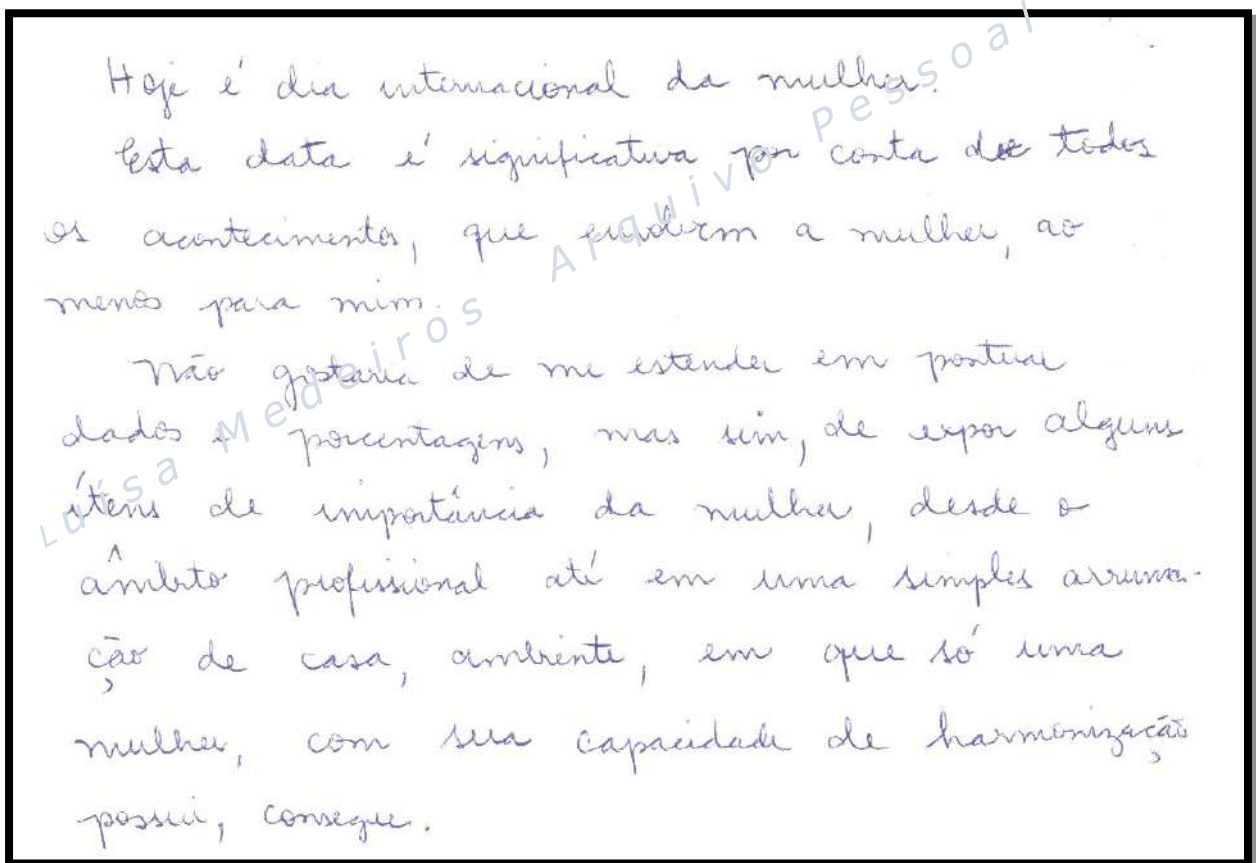 Hoje é dia internacional da mulher.
Esta data é significativa por conta de todos
os acontecimentos, que envolvem a mulher, ao
menos para mim.
Não gostaria de me estender em pontuar
dados e porcentagens, mas sim, de expor alguns
ítens de importância da mulher, desde o
âmbito profissional até em uma simples arruma-
ção de casa, ambiente, em que só uma
mulher, com sua capacidade de harmonização
possui, consegue.
Luísa Medeiros Arquivo Pessoal